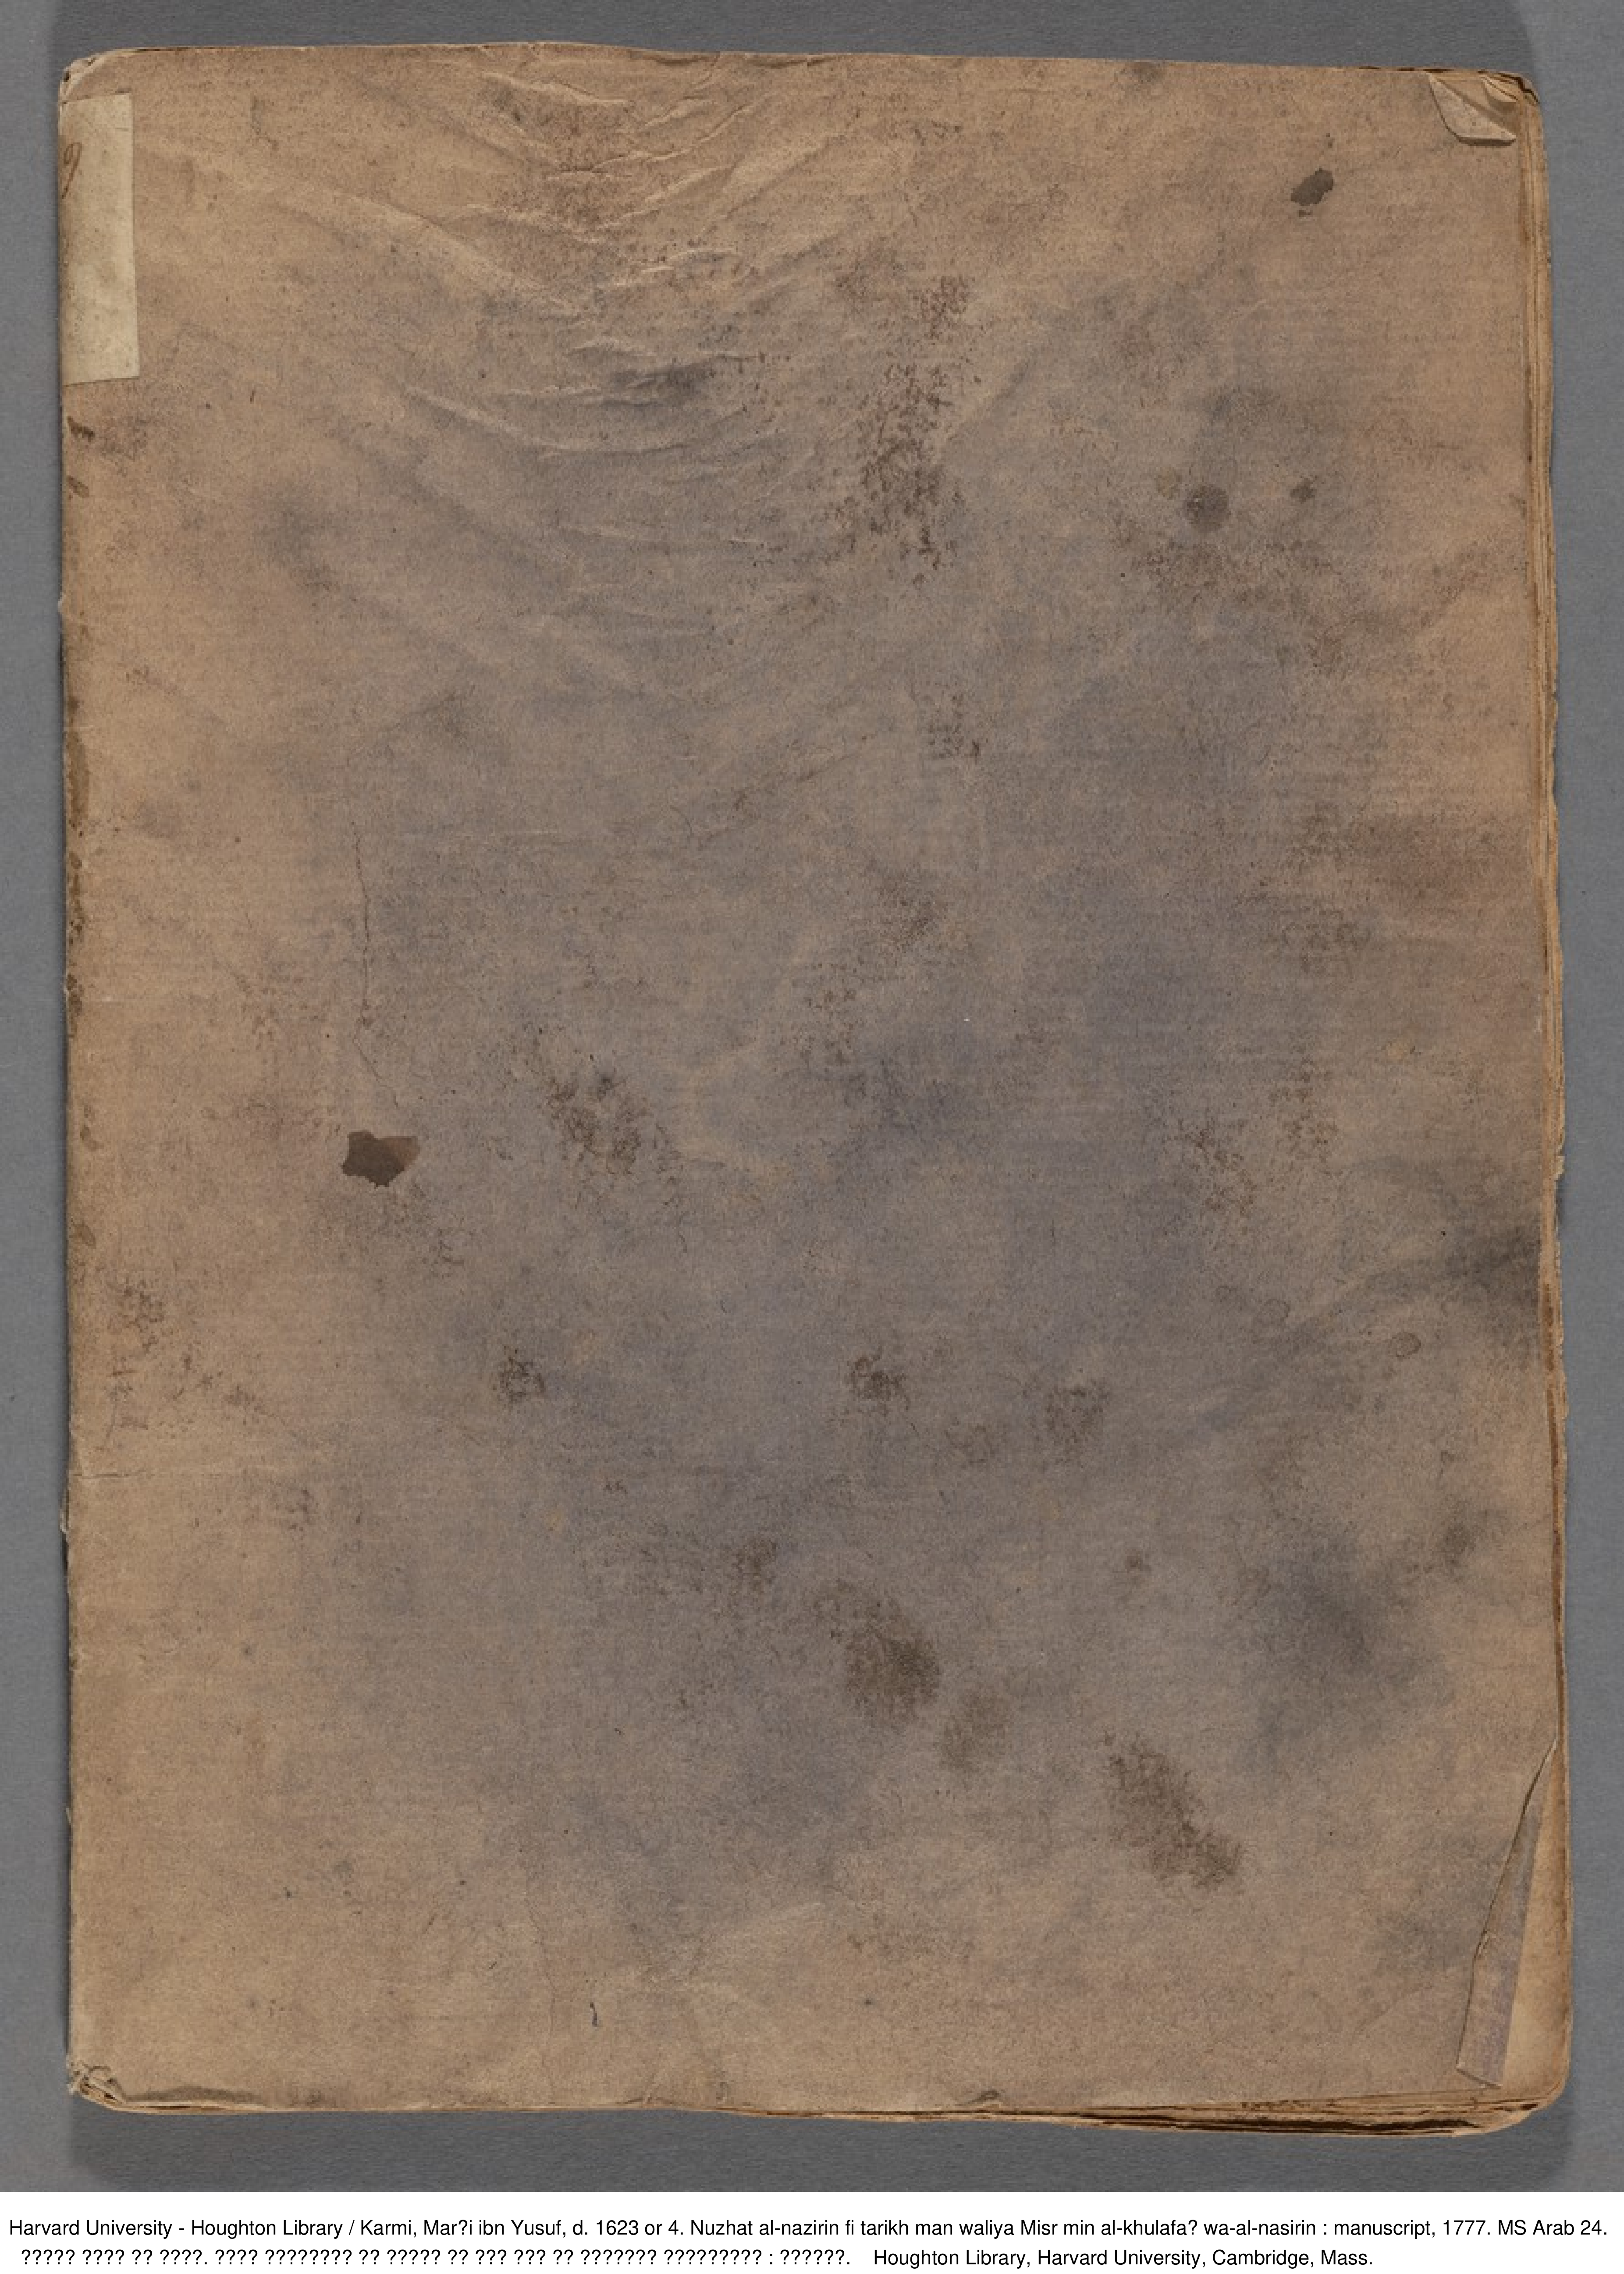 Harvard University - Houghton Library / Karmi, Mar?i ibn Yusuf, d. 1623 or 4. Nuzhat al-nazirin fi tarikh man waliya Misr min al-khulafa? wa-al-nasirin : manuscript, 1777. MS Arab 24.
????? ???? ?? ????. ???? ???????? ?? ????? ?? ??? ??? ?? ??????? ????????? : ??????. Houghton Library, Harvard University, Cambridge, Mass.